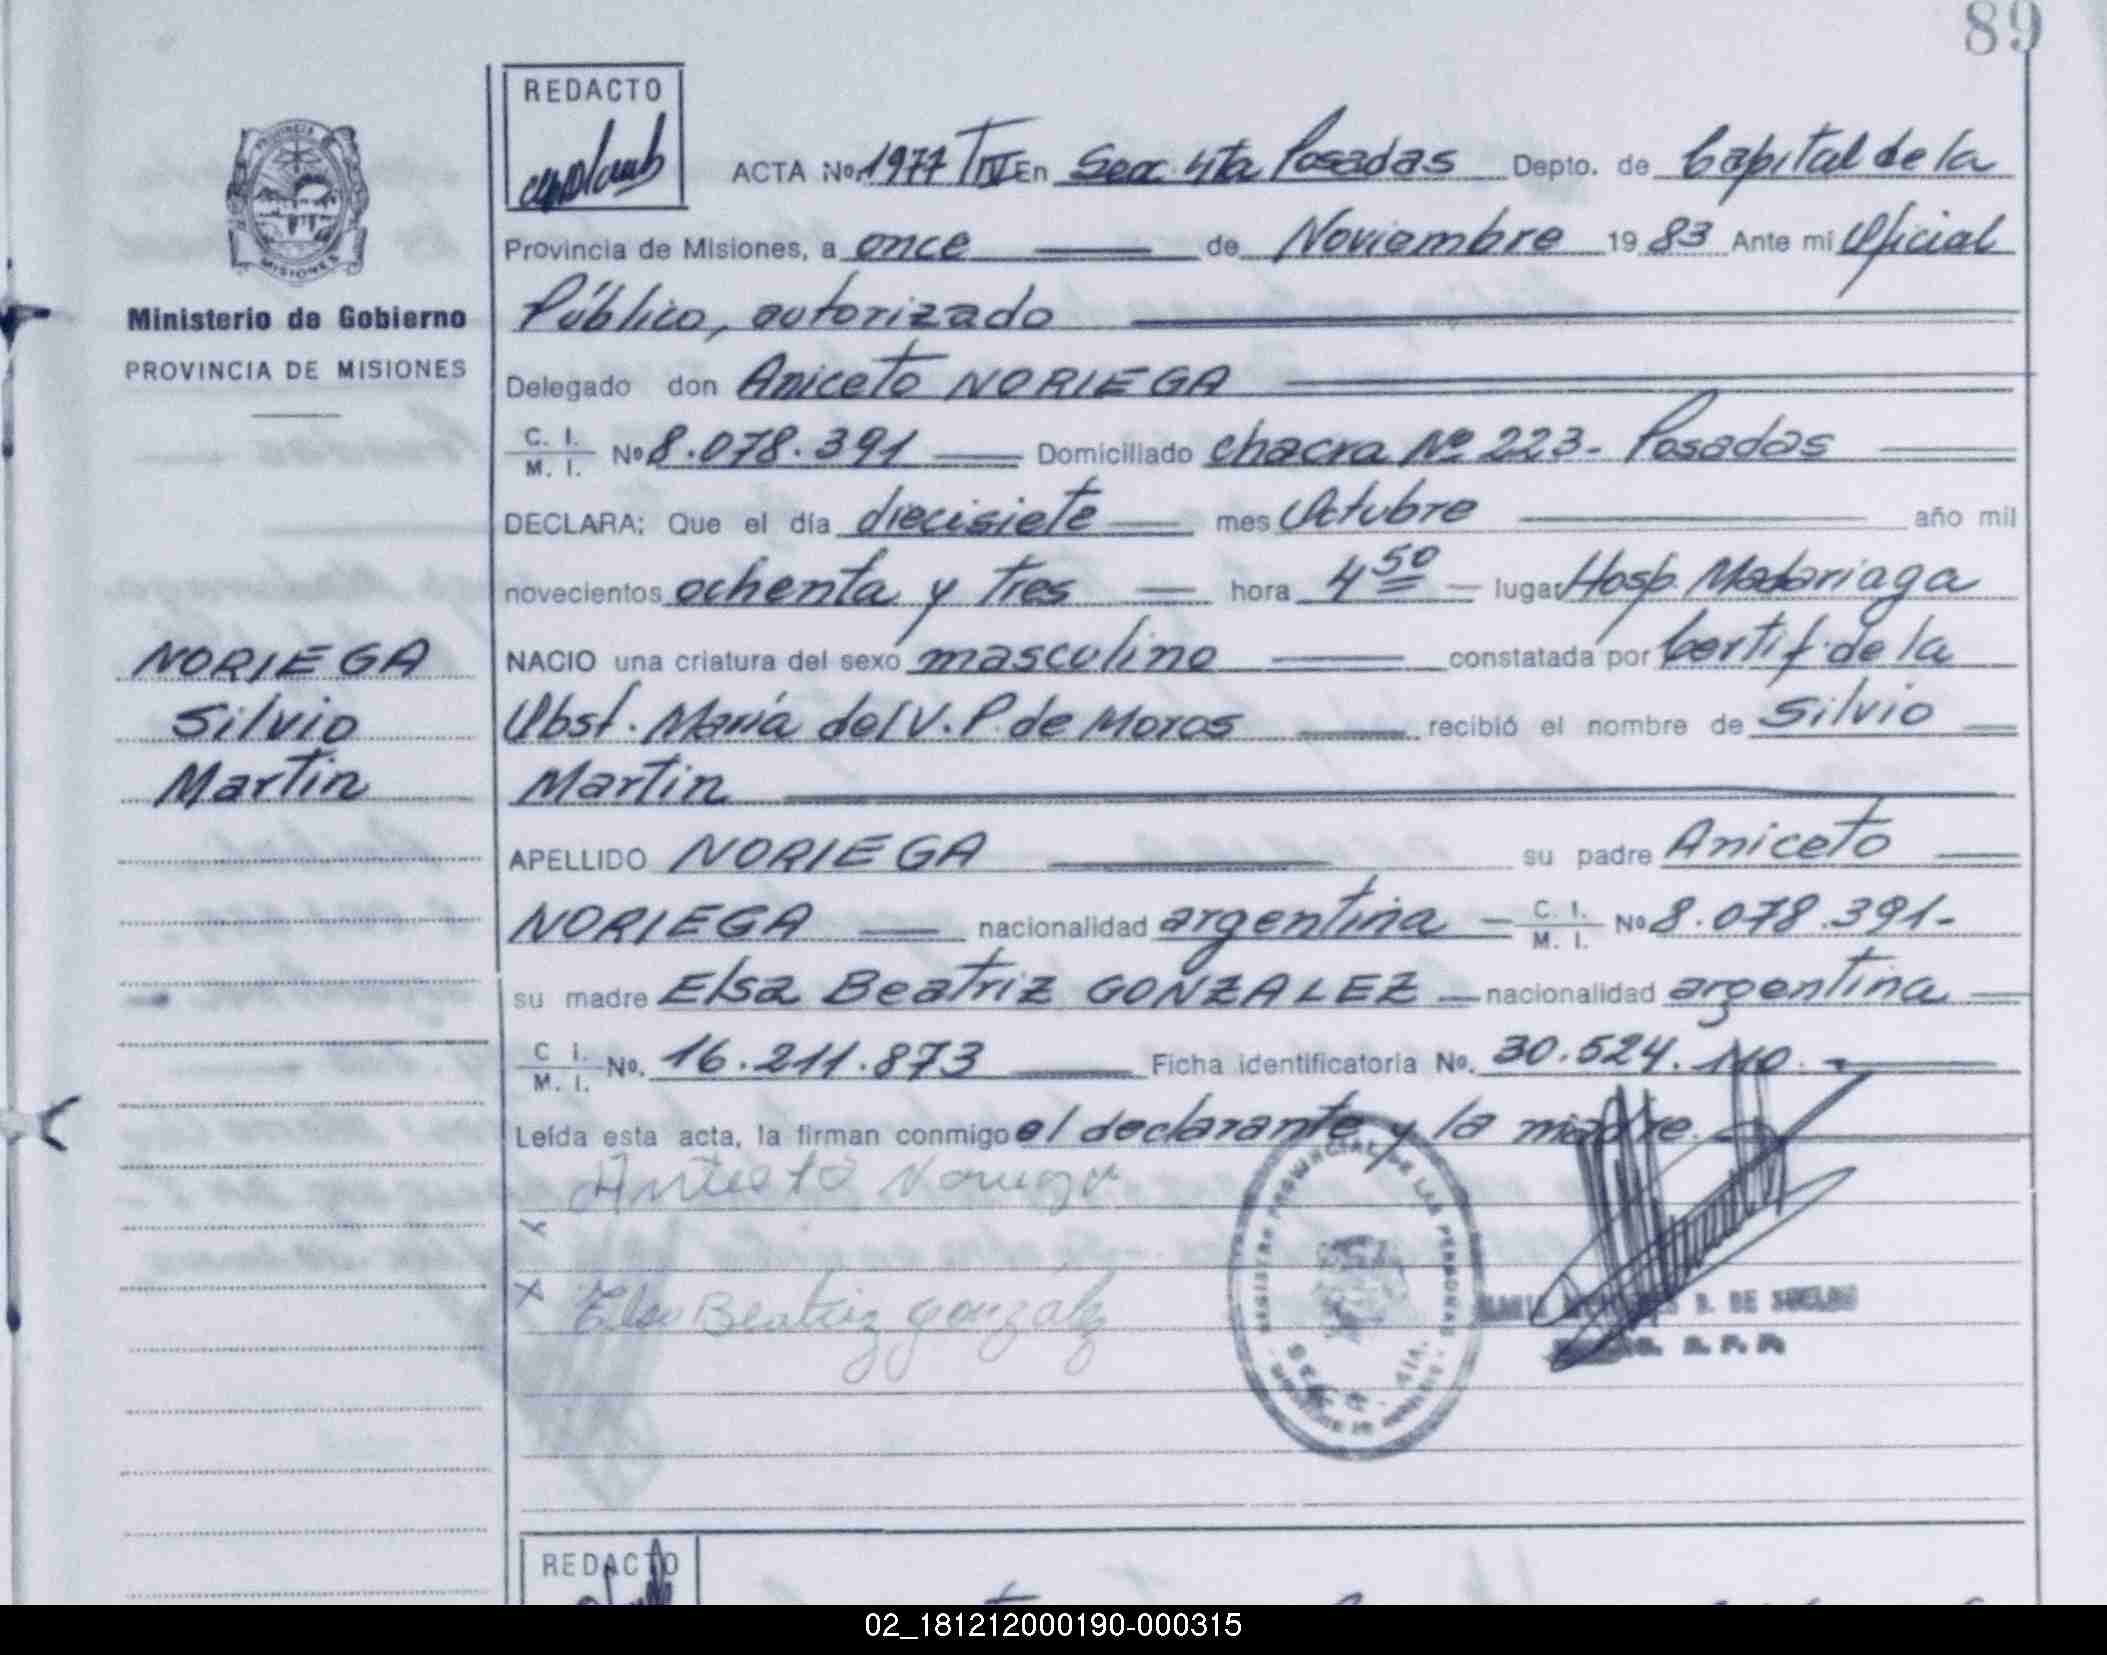 89
REDACTO
ACTA No. 1977 T IV En Secc. 4ta Posadas Depto. de Capital de la
Provincia de Misiones, a once de Noviembre 1983 Ante mi Oficial
Público, autorizado
Ministerio de Gobierno
PROVINCIA DE MISIONES
Delegado don Aniceto NORIEGA
C. I. M. I. No 8.078.391 Domiciliado chacra Nº 223- Posadas
DECLARA: Que el día diecisiete mes Octubre año mil
novecientos ochenta y tres hora 4 50 lugar Hosp. Madariaga
NORIEGA
Silvio
Martin
NACIO una criatura del sexo masculino constatada por Certif. de la
Obst. María del V. P. de Moros recibió el nombre de Silvio
Martin
APELLIDO NORIEGA su padre Aniceto
NORIEGA nacionalidad argentina C. I. M. I. No 8.078.391-
su madre Elsa Beatriz GONZALEZ nacionalidad argentina
C. I. M. I. No. 16.211.873 Ficha identificatoria No. 30.524.110.
Leída esta acta, la firman conmigo el declarante y la madre.
Aniceto Noriega
x
x Elsa Beatriz gonzalez
REGISTRO PROVINCIAL DE LAS PERSONAS
MISIONES
PROVINCIA
REDACTO
02_181212000190-000315